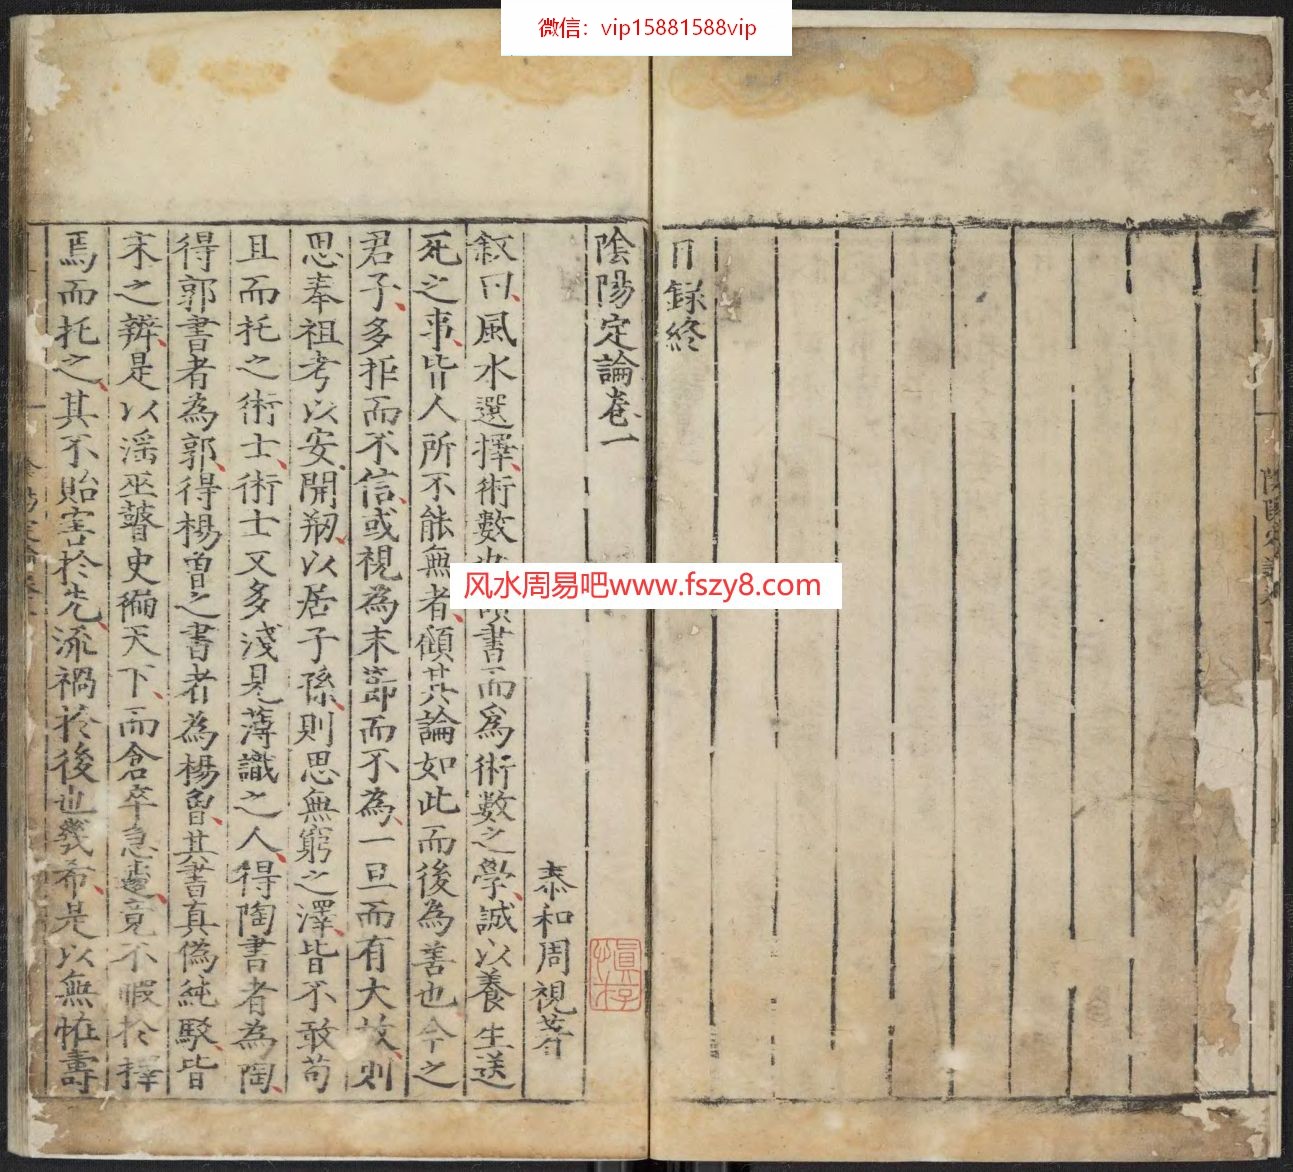 微信：vip15881588vip
目録終
陰陽定論卷一
泰和周視著
叙曰風水選擇術數
書而為術數之學誠以養生送
死之事皆人所不能無者顧其論如此而後為善也今之
君子多拒而不信或視為末節而不為一旦而有大故則
思奉祖考以安開剏以居子孫則思無窮之澤皆不敢苟
且而托之術士術士又多淺見薄識之人得陶書者為陶
得郭書者為郭得楊曽之書者為楊曽其書真偽純駁皆
未之辨是以滛巫瞽史徧天下而倉卒急遽竟不暇於擇
焉而托之其不貽害於先流禍於後也幾希是以無恠壽
风水周易吧www.fszy8.com